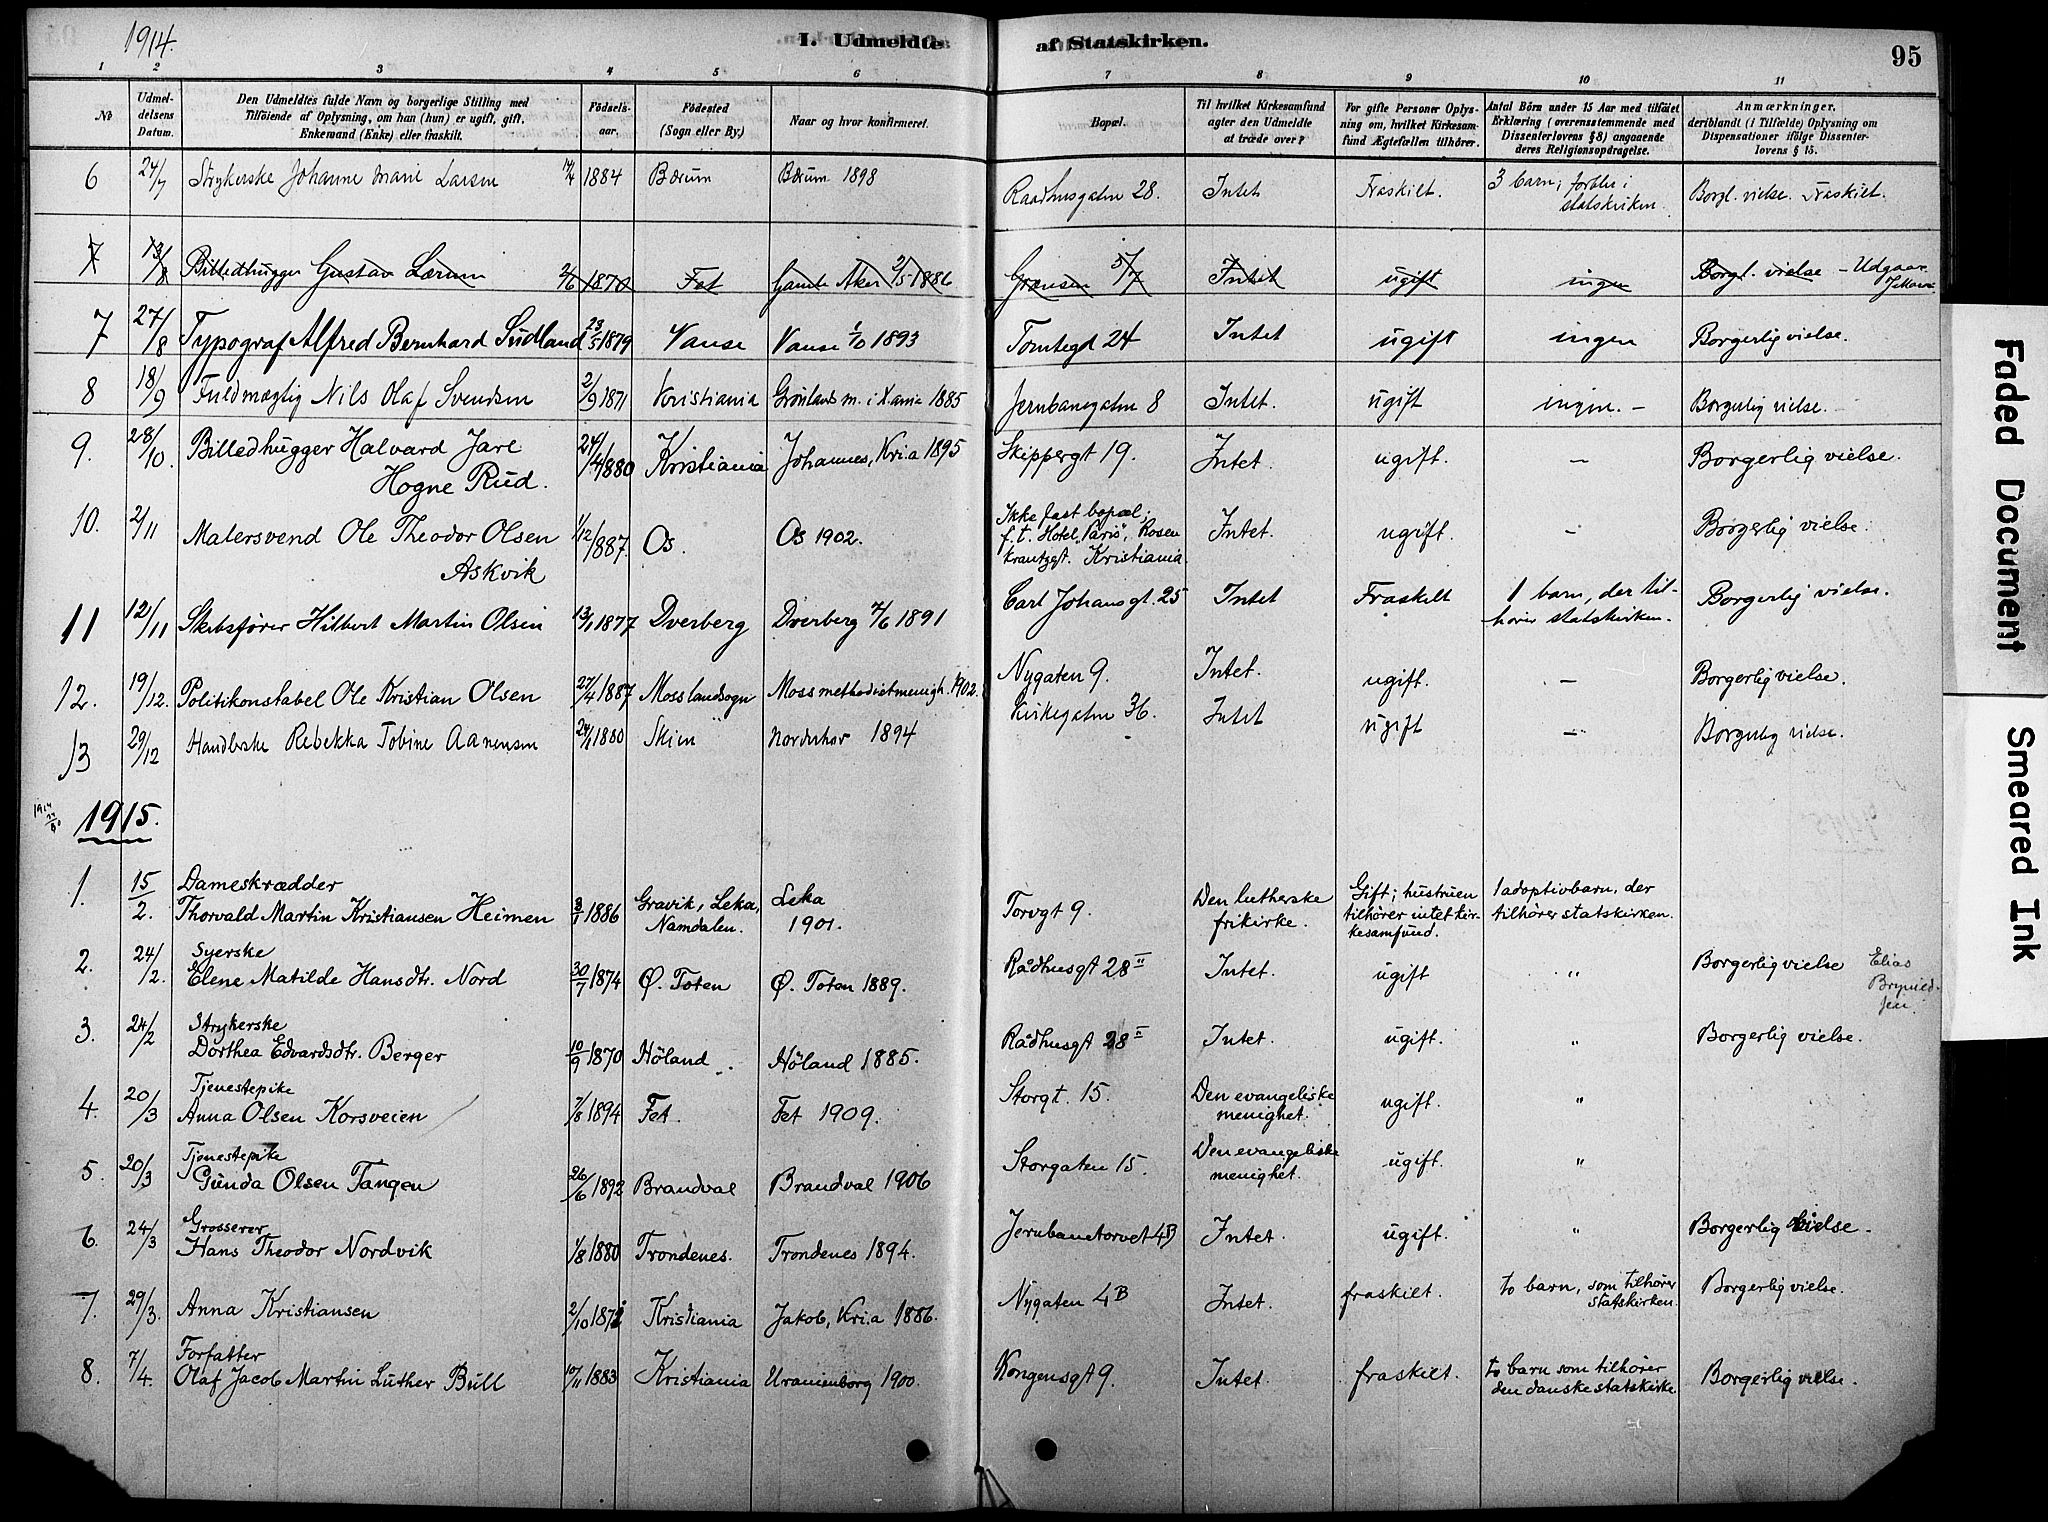 1914.
I. Udmeldte af Statskirken.
95
1 2 3 4 5 6 7 8 9 10 11
No
Udmel-
delsens
Datum.
Den Udmeldtes fulde Navn og borgerlige Stilling med
Tilföiende af Oplysning, om han (hun) er ugift, gift,
Enkemand (Enke) eller fraskilt.
Födsels-
aar.
Födested
(Sogn eller By.)
Naar og hvor konfirmeret.
Bopæl.
Til hvilket Kirkesamfund
agter den Udmeldte
at træde over?
For gifte Personer Oplys-
ning om, hvilket Kirkesam-
fund Ægtefællen tilhörer.
Antal Börn under 15 Aar med tilföiet
Erklæring (overensstemmende med
Dissenterlovens § 8) angaaende
deres Religionsopdragelse.
Anmærkninger,
deriblandt (i Tilfælde) Oplysning om
Dispensationer ifölge Dissenter-
lovens § 15.
6 24/7 Strykerske Johanne Marie Larsen 1884 Bærum Bærum 1898 Raadhusgaten 28. Intet Fraskilt. 3 barn; forblir i
statskirken. Borgl. vielse. Fraskilt.
7 13/8 Billedhugger Gustav Lærum 2/6 1870 Fet Gamle Aker 2/5 1886 Grænsen 5/7 Intet ugift ingen Borgl. vielse - Udgaar
7 27/8 Typograf Alfred Bernhard Sudland 23/5 1879 Vanse Vanse 1/10 1893 Tomtegd 24 Intet ugift ingen Borgerlig vielse.
8 18/9 Fuldmægtig Nils Olaf Svendsen 2/9 1871 Kristiania Grønlands m. i Kania 1885 Jernbanegaten 8 Intet. ugift ingen. - Borgerlig vielse.
9. 28/10. Billedhugger Halvard Jarl
Hogne Rud. 24/4 1880 Kristiania Johannes, Kr.a 1895 Skippergt 19. Intet. ugift. - Borgerlig vielse.
10. 2/11 Malersvend Ole Theodor Olsen
Askvik 1/12 1887. Os. Os 1902. Ikke fast bopæl;
f.t. Hotel "Paris", Rosen
krantzgt. Kristiania. Intet. ugift. - Borgerlig vielse.
11 12/11 Skibsfører Hilbert Martin Olsen 13/1 1877 Dverberg Dverberg 7/6 1891 Carl Johans gt. 25 Intet Fraskilt 1 barn, der til-
hører statskirken. Borgerlig vielse.
12. 19/12. Politikonstabel Ole Kristian Olsen 27/4 1887 Moss landsogn Moss methodistmenigh. 1902. Nygaten 9. Intet. ugift. - Borgerlig vielse.
13 29/12 Handlerske Rebekka Tobine Aanensen 24/1 1880 Skien Norderhov 1894 Kirkegaten 36. Intet ugift - Borgerlig vielse.
1915.
1. 15/2. Dameskrædder
Thorvald Martin Kristiansen Heimen 8/1 1886 Gravik, Leka,
Namdalen. Leka
1901. Torvgt 9. Den lutherske
frikirke. Gift; hustruen
tilhører intet kir-
kesamfund. 1 adoptivbarn, der
tilhører statskirken.
2. 24/2. Syerske
Elene Matilde Hansdtr. Nord 30/7 1874 Ø. Toten Ø. Toten 1889. Rådhusgt 28 II Intet. ugift " Borgerlig vielse Elias
3. 24/2 Strykerske
Dorthea Edvardsdtr. Berger 10/9 1870 Höland Höland 1885. Rådhusgt 28 II Intet. ugift. " Borgerlig vielse.
4. 20/3 Tjenestepike
Anna Olsen Korsveien 7/8 1894 Fet. Fet 1909. Storgt. 15. Den evangeliske
menighet. ugift. "
5. 20/3 Tjenestepike
Gunda Olsen Tangen 26/6 1892 Brandval Brandval 1906 Storgaten 15. Den evangeliske
menighet. ugift. "
6. 24/3 Grosserer
Hans Theodor Nordvik 1/8 1880 Trondenes. Trondenes 1894. Jernbanetorvet 4B Intet. ugift. " Borgerlig vielse.
7. 29/3. Anna Kristiansen 2/10 Kristiania Jakob, Kr.a 1886. Nygaten 4B Intet. fraskilt. to barn, som tilhører
statskirken. Borgerlig vielse.
8. 7/4. Forfatter
Olaf Jacob Martin Luther Bull 10/11 1883 Kristiania Uranienborg 1900. Kongensgt 9. Intet. fraskilt. to barn som tilhører
den danske statskirke Borgerlig vielse.
Faded Document
Smeared Ink